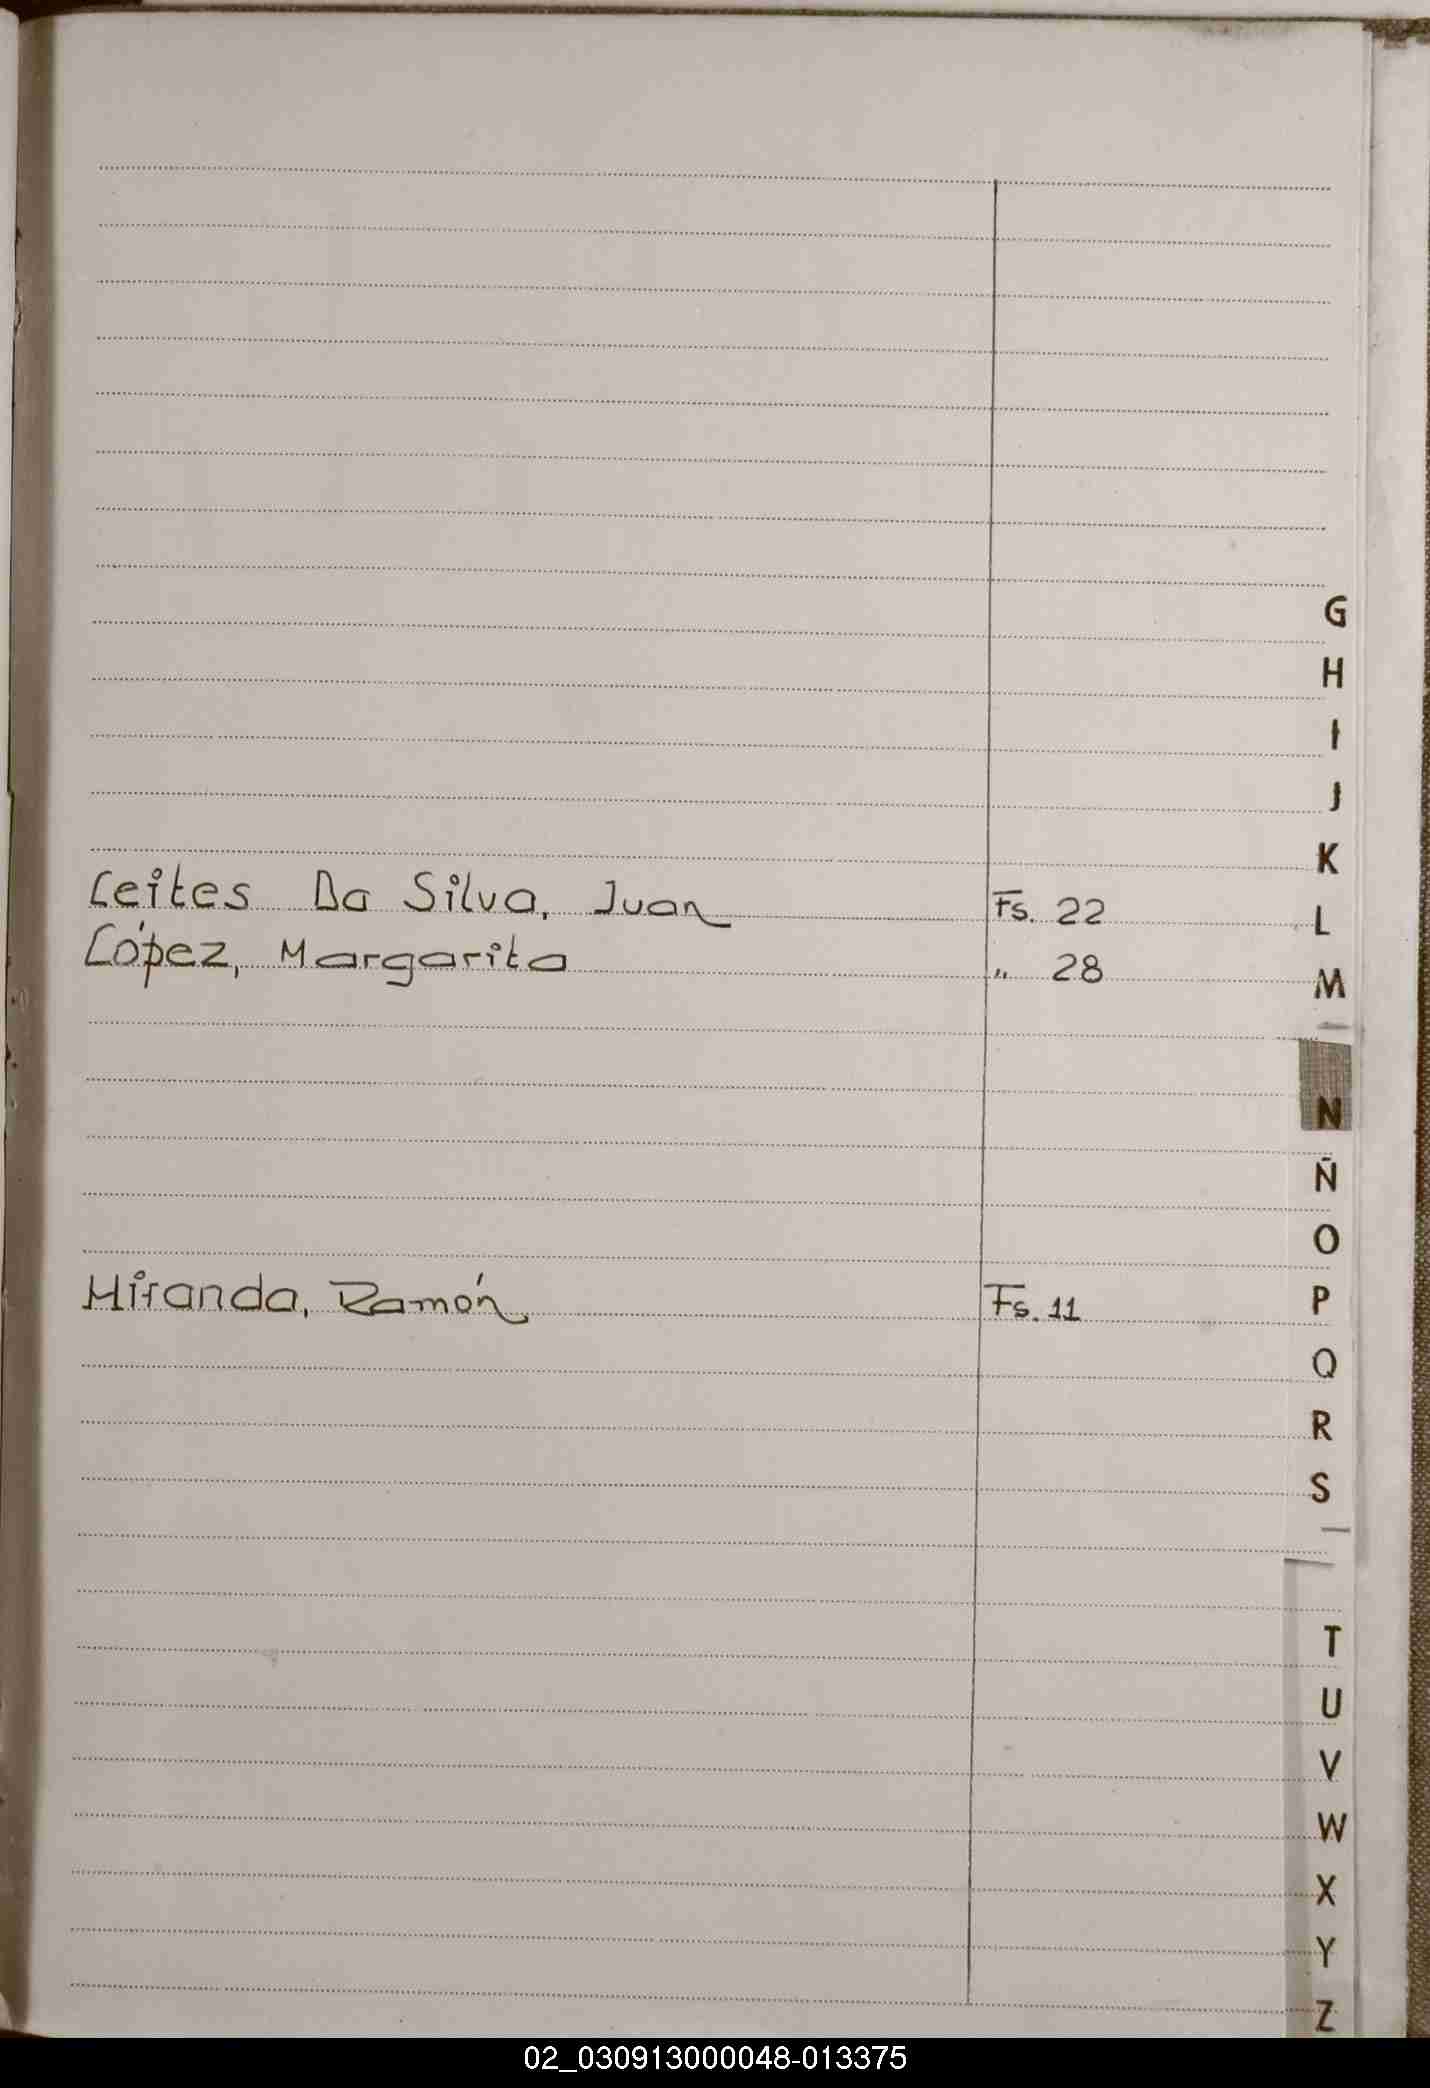 Leites Da Silva, Juan Fs. 22
López, Margarita " 28
Miranda, Ramón Fs. 11
G
H
I
J
K
L
M
N
Ñ
O
P
Q
R
S
T
U
V
W
X
Y
Z
02_030913000048-013375